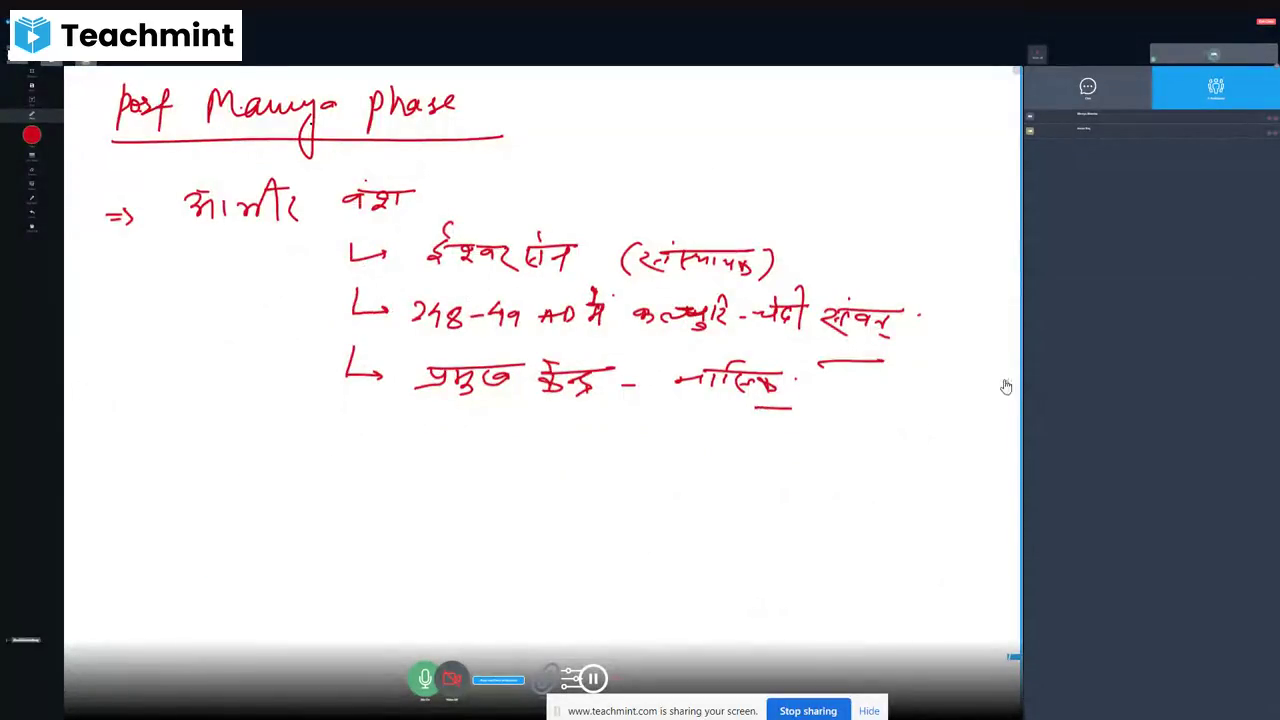 Teachmint
Post Maurya Phase
⇒ आभीर वंश
↳ ईश्वरसेन (संस्थापक)
↳ 248-49 AD में कलचुरि-चेदी संवत्.
↳ प्रमुख केन्द्र - नासिक.
www.teachmint.com is sharing your screen.
Stop sharing
Hide